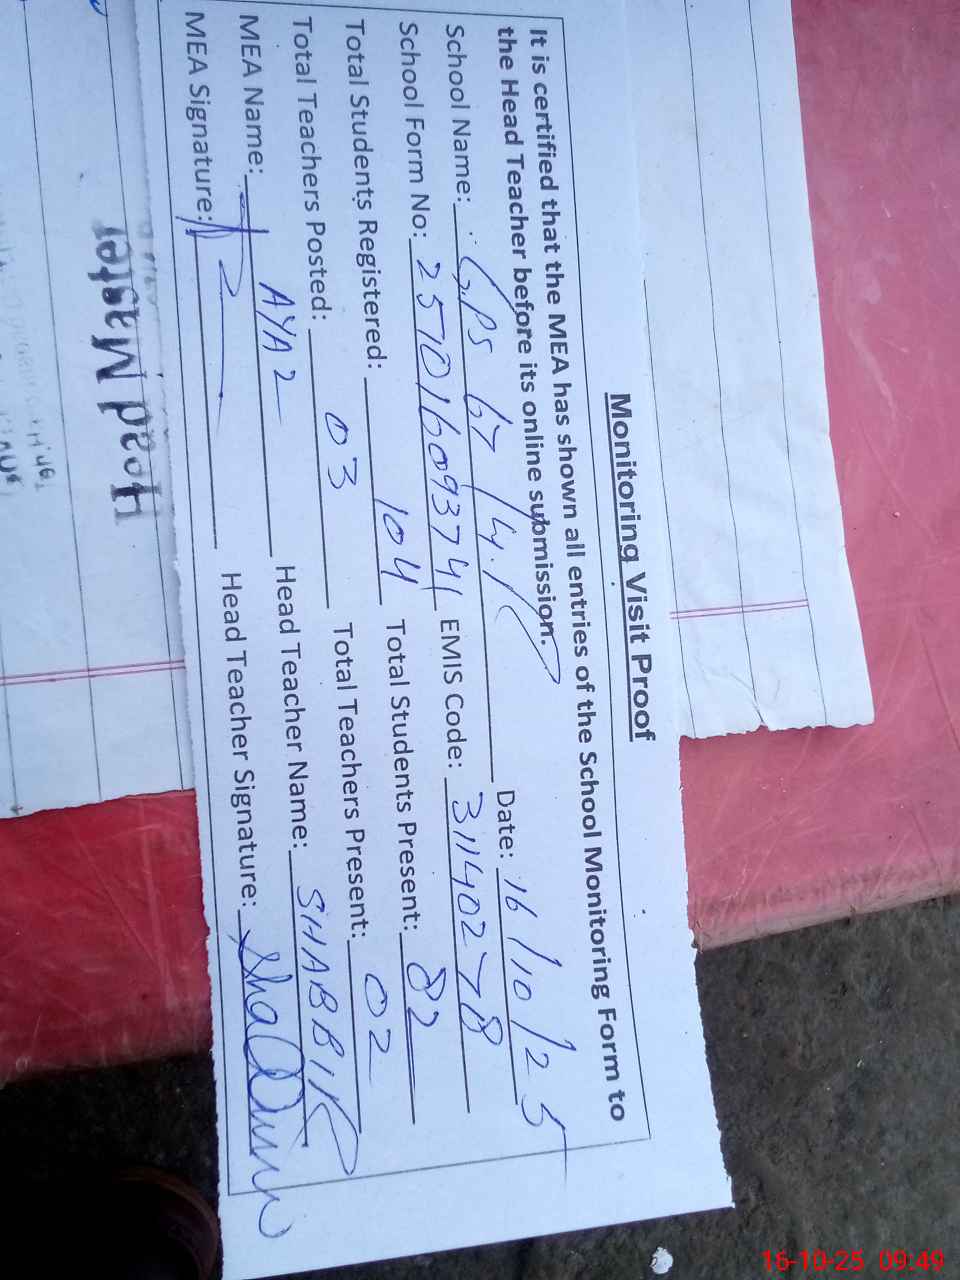 Monitoring Visit Proof
It is certified that the MEA has shown all entries of the School Monitoring Form to
the Head Teacher before its online submission.
School Name: GPS 67/4.R Date: 16/10/25
School Form No: 25701609374 EMIS Code: 31140278
Total Students Registered: 104 Total Students Present: 82
Total Teachers Posted: 03 Total Teachers Present: 02
MEA Name: AYAZ Head Teacher Name: SHABBIR
MEA Signature: Head Teacher Signature:
Head Master
16-10-25 09:49